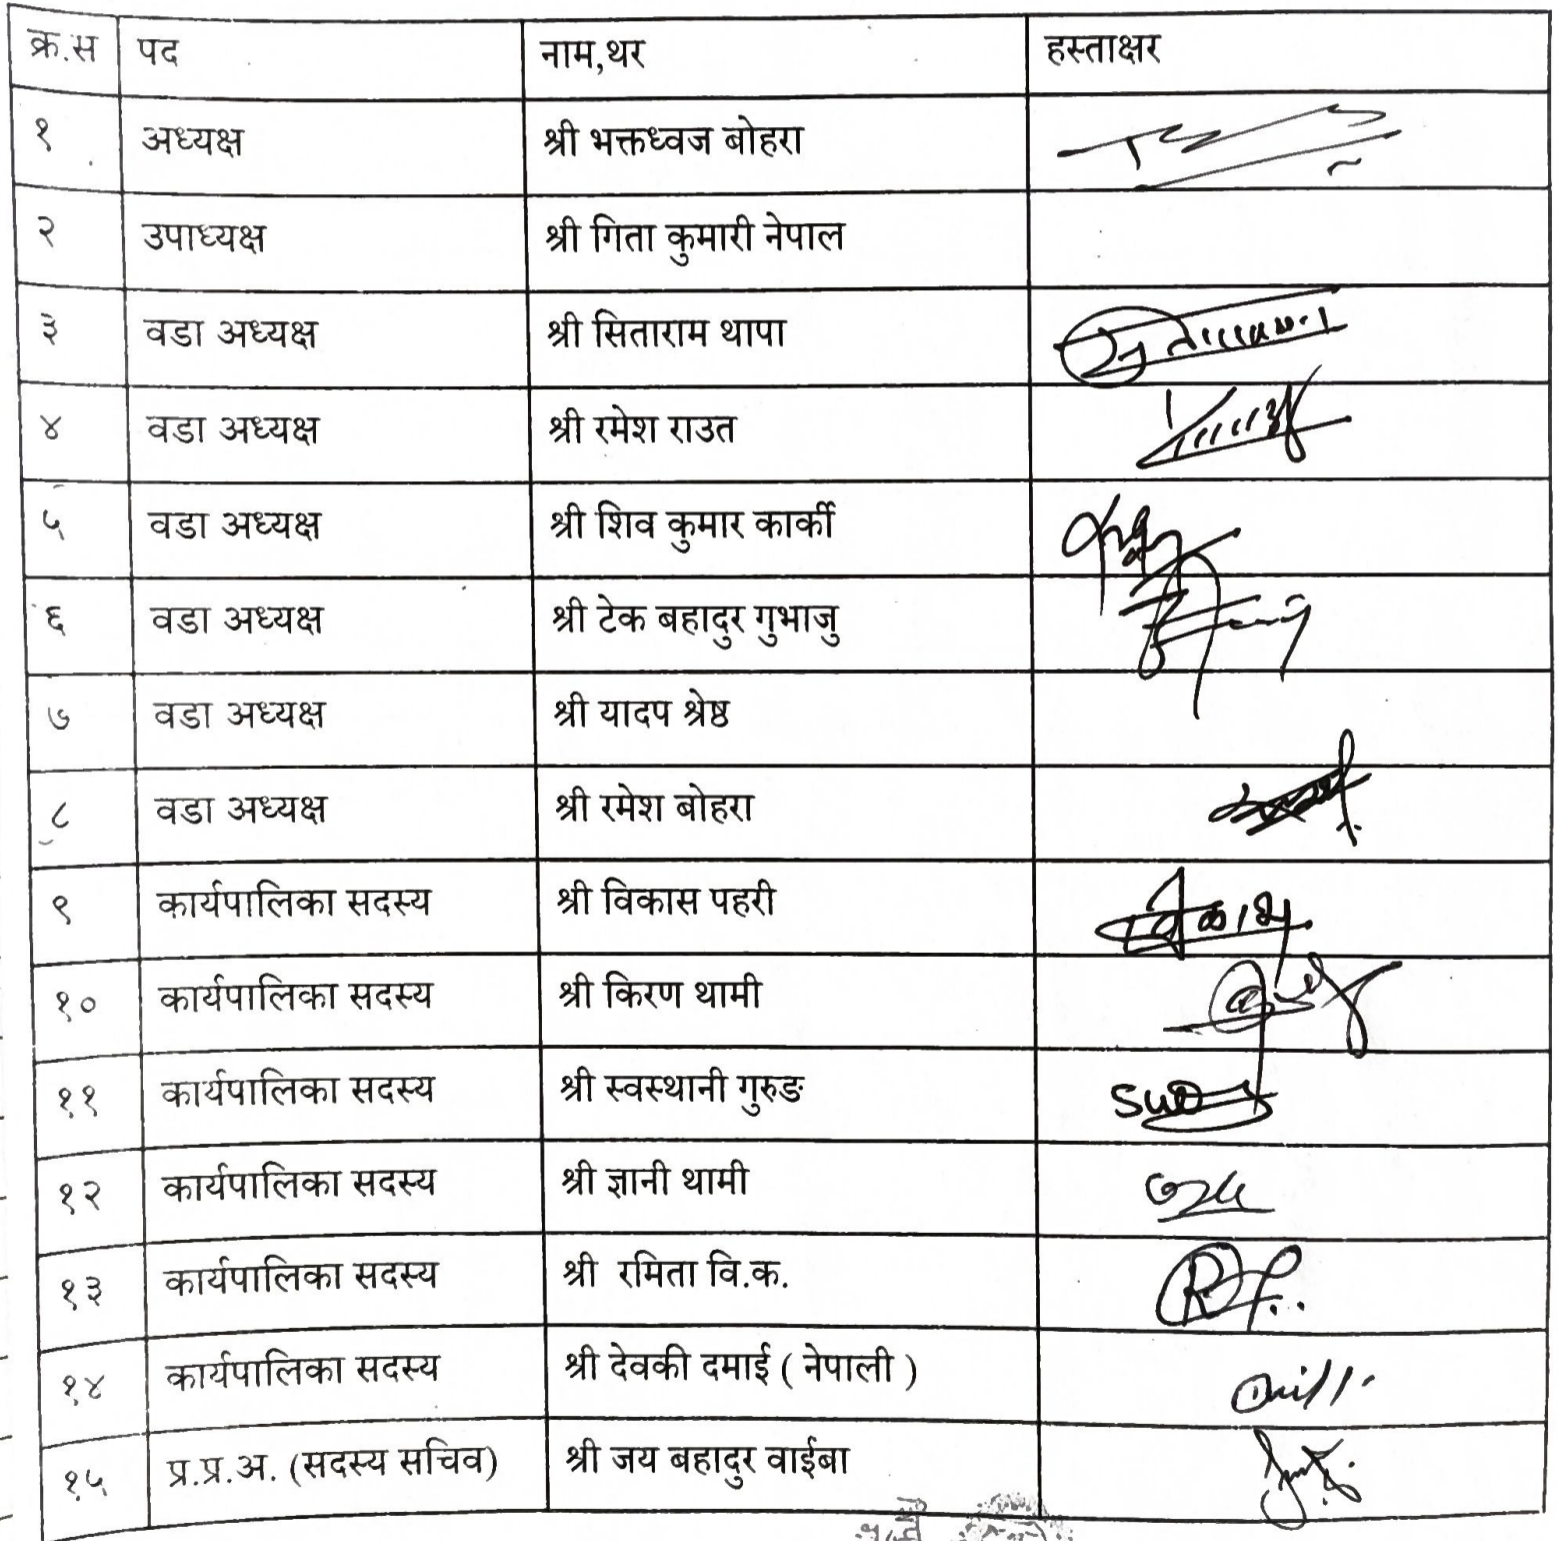 क्र.स पद नाम,थर हस्ताक्षर
१ अध्यक्ष श्री भक्तध्वज बोहरा
२ उपाध्यक्ष श्री गिता कुमारी नेपाल
३ वडा अध्यक्ष श्री सिताराम थापा
४ वडा अध्यक्ष श्री रमेश राउत
५ वडा अध्यक्ष श्री शिव कुमार कार्की
६ वडा अध्यक्ष श्री टेक बहादुर गुभाजु
७ वडा अध्यक्ष श्री यादप श्रेष्ठ
८ वडा अध्यक्ष श्री रमेश बोहरा
९ कार्यपालिका सदस्य श्री विकास पहरी
१० कार्यपालिका सदस्य श्री किरण थामी
११ कार्यपालिका सदस्य श्री स्वस्थानी गुरुङ
१२ कार्यपालिका सदस्य श्री ज्ञानी थामी
१३ कार्यपालिका सदस्य श्री रमिता वि.क.
१४ कार्यपालिका सदस्य श्री देवकी दमाई ( नेपाली )
१५ प्र.प्र.अ. (सदस्य सचिव) श्री जय बहादुर वाईबा